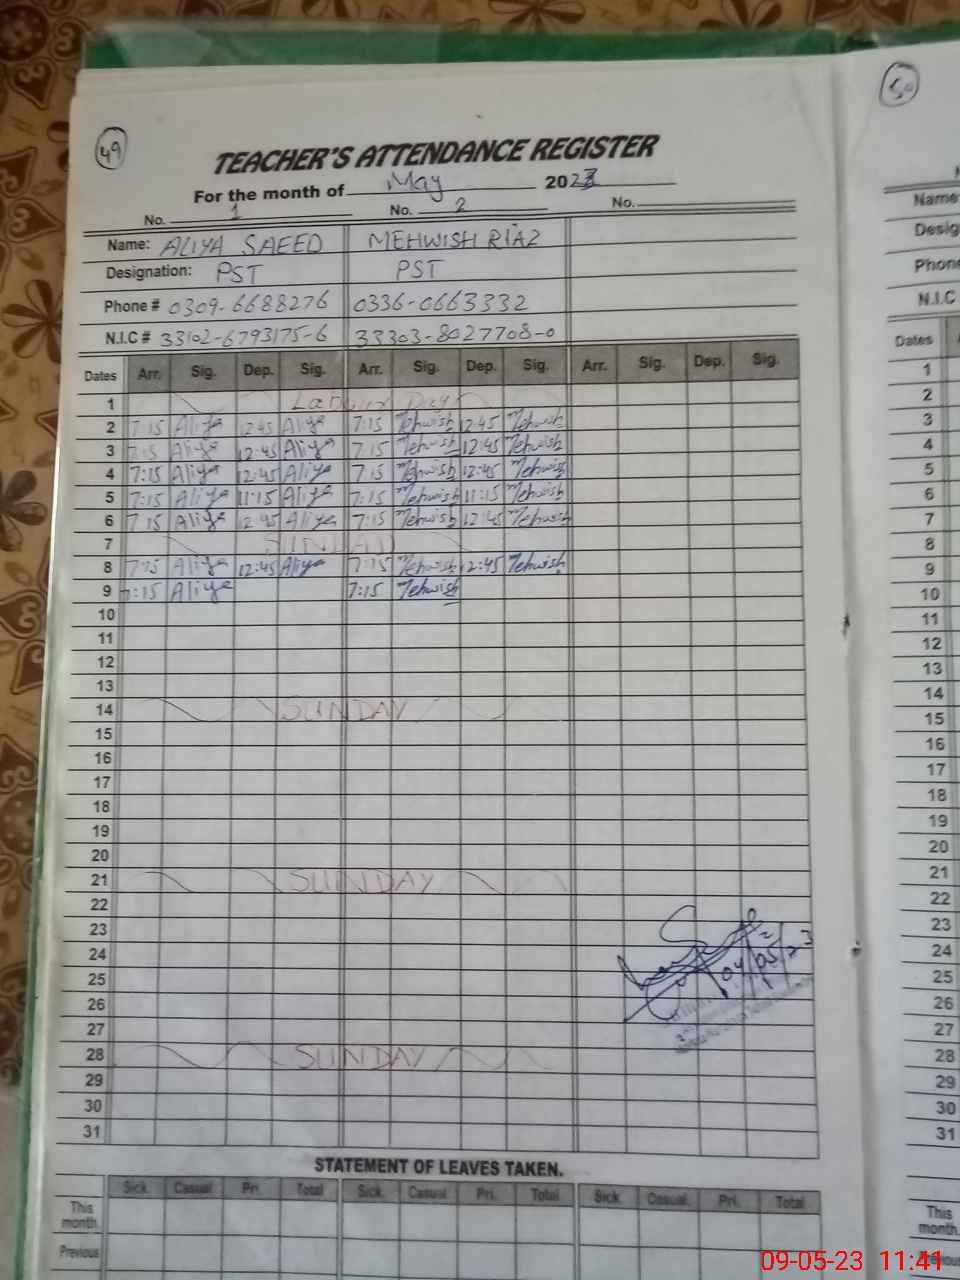 49
50
TEACHER'S ATTENDANCE REGISTER
For the month of May 2023
No. 1 No. 2 No.
Name: ALIYA SAEED MEHWISH RIAZ
Designation: PST PST
Phone # 0309-6688276 0336-0663332
N.I.C # 33102-6793175-6 33303-8027708-0
Dates Arr. Sig. Dep. Sig. Arr. Sig. Dep. Sig. Arr. Sig. Dep. Sig.
1 Day
2 7:15 Aliya 12:45 Aliya 7:15 Mehwish 12:45 Mehwish
3 7:15 Aliya 12:45 Aliya 7:15 Mehwish 12:45 Mehwish
4 7:15 Aliya 12:45 Aliya 7:15 Mehwish 12:45 Mehwish
5 7:15 Aliya 11:15 Aliya 7:15 Mehwish 11:15 Mehwish
6 7:15 Aliya 12:45 Aliya 7:15 Mehwish 12:45 Mehwish
7 SUNDAY
8 7:15 Aliya 12:45 Aliya 7:15 Mehwish 12:45 Mehwish
9 7:15 Aliya 7:15 Mehwish
10
11
12
13
14 SUNDAY
15
16
17
18
19
20
21 SUNDAY
22
23
24
25
26
27
28 SUNDAY
29
30
31
STATEMENT OF LEAVES TAKEN.
Sick. Casual. Pri. Total Sick. Casual. Pri. Total Sick. Casual. Pri. Total
This month.
Previous
Name
Phone
N.I.C
Dates
1
2
3
4
5
6
7
8
9
10
11
12
13
14
15
16
17
18
19
20
21
22
23
24
25
26
27
28
29
30
31
This month.
09-05-23 11:41